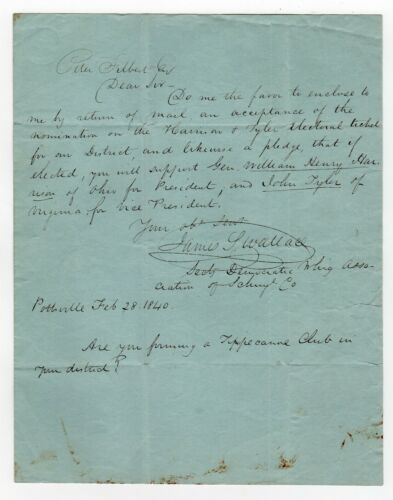 Peter Filbert Esq
Dear Sir
Do me the favor to enclose to
me by return of mail an acceptance of the
nomination on the Harrison & Tyler Electoral ticket
for our District, and likewise a pledge, that if
elected, you will support Gen. William Henry Har-
rison of Ohio for President, and John Tyler of
Virginia, for vice President.
Your obt Servt
James S. Wallace
Secty Democratic Whig Asso-
ciation of Schuyl Co
Pottsville Feb 28. 1840.
Are you forming a Tippecanoe Club in
your district?